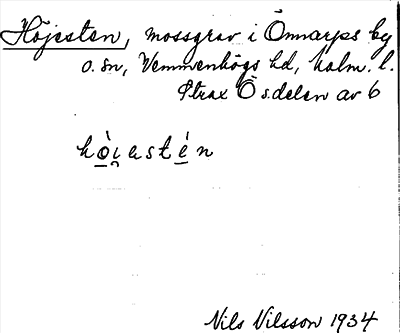 Höjesten, mossgrav i Önnarps by
o. sn, Vemmenhögs hd, Malm. l.
Strax Ö sdelen av 6
hò̠i̯ɐsté̠n
Nils Nilsson 1934